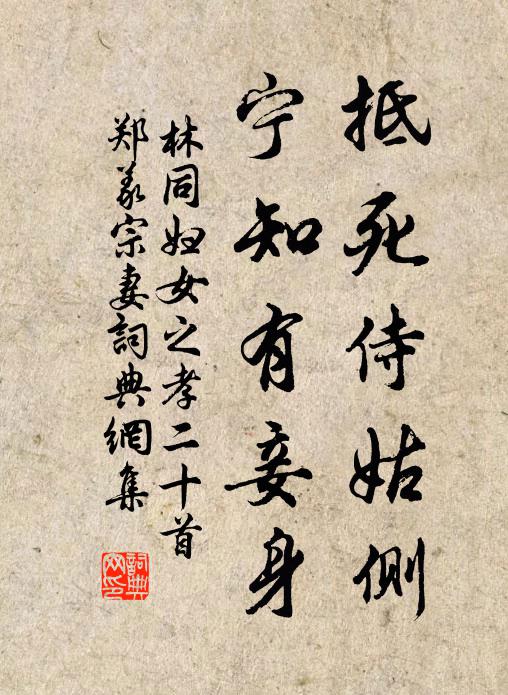 抵死侍姑側
宁知有妾身
林同妇女之孝二十首
郑义宗妻詞典網集
詞典网印